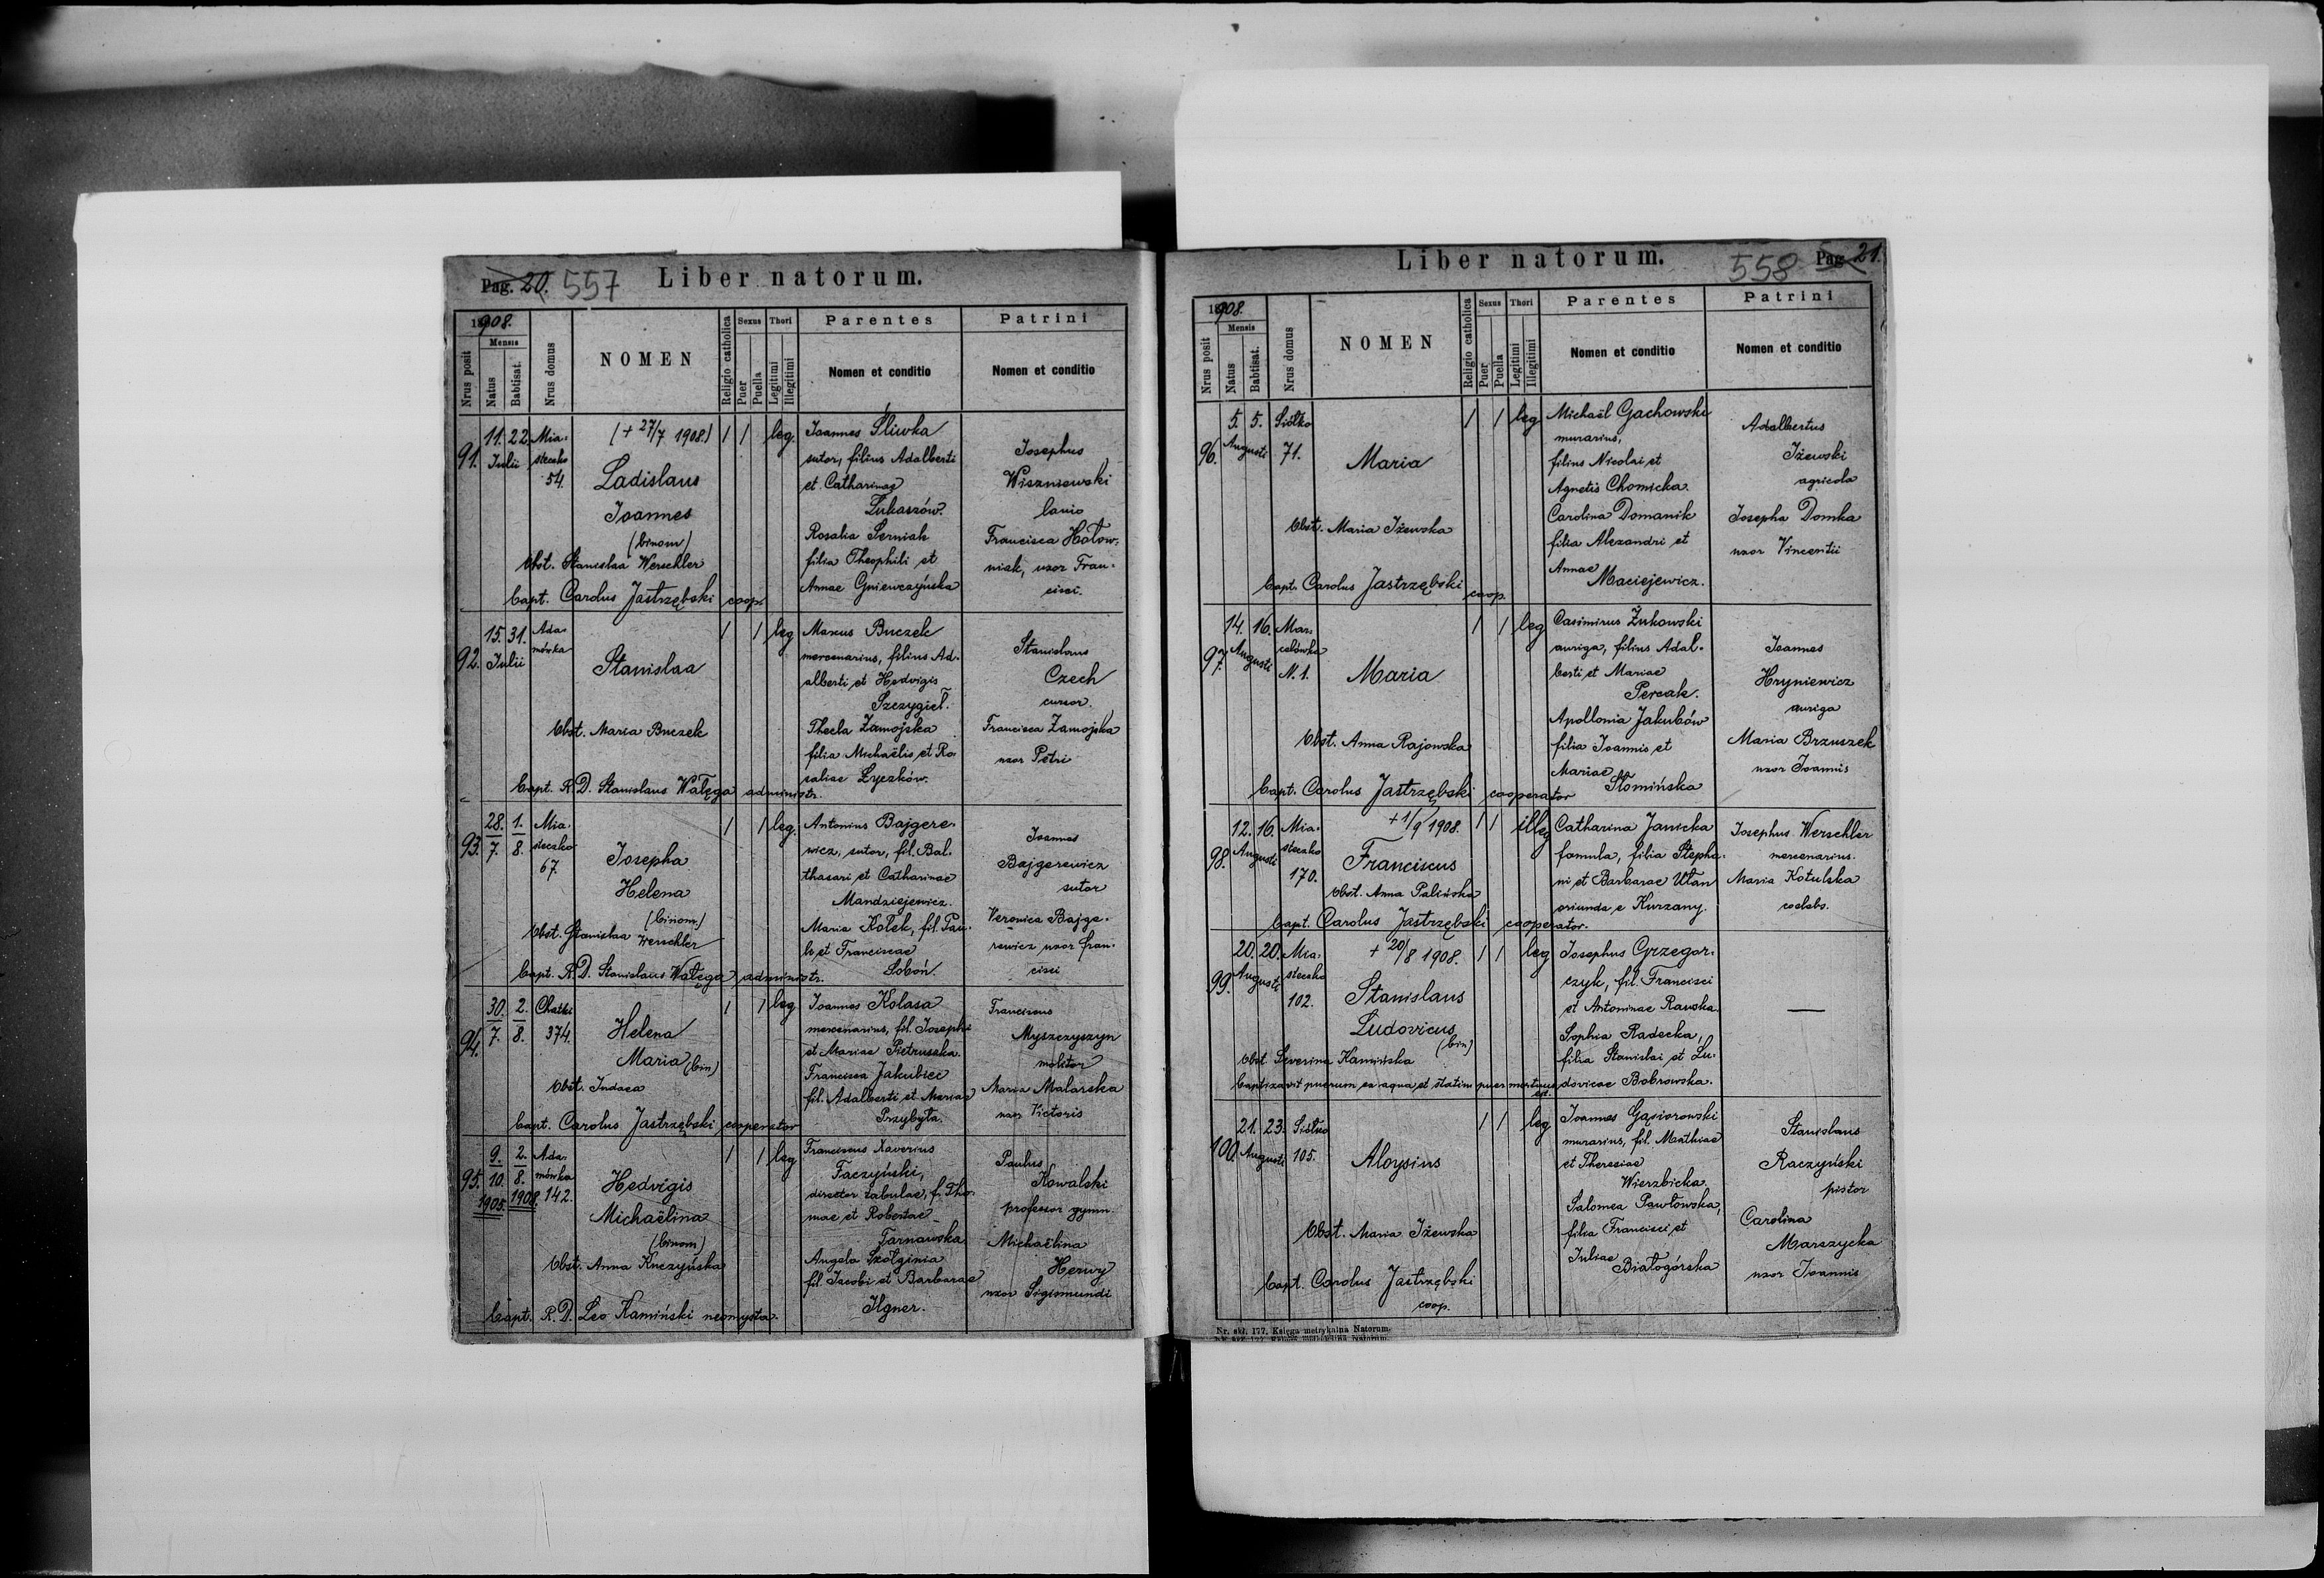 Pag. 20. 557 Liber natorum.
1908.
Mensis
Nrus posit
Natus
Babtisat.
Nrus domus
NOMEN
Religio catholica
Sexus
Puer
Puella
Thori
Legitimi
Illegitimi
Parentes
Nomen et conditio
Patrini
Nomen et conditio
91.
11. 22.
Julii
Mia-
steczko
54.
(+ 27/7 1908.)
Ladislaus
Joannes
(binom)
Obst. Stanislaa Werschler
bapt. Carolus Jastrzębski coop.
1 1 leg.
Joannes Śliwka
sutor, filius Adalberti
et Catharinae
Łukaszów.
Rosalia Serniak
filia Theophili et
Annae Gniewczyńska
Josephus
Wiszniewski
lanio
Francisca Hołow-
niak, uxor Fran-
cisci.
92.
15. 31.
Julii
Ada-
mówka
Stanislaa
Obst. Maria Buczek
bapt. R.D. Stanislaus Wałęga administr.
1 1 leg
Marcus Buczek
mercenarius, filius Ad-
alberti et Hedvigis
Szczygieł.
Thecla Zamojska
filia Michaëlis et Ro-
saliae Łyczków.
Stanislaus
Czech
cursor.
Francisca Zamojska
uxor Petri
93.
28. 1.
7. 8.
Mia-
steczko
67.
Josepha
Helena
(binom)
Obst. Stanislaa Werschler
bapt. R.D. Stanislaus Wałęga administr.
1 1 leg.
Antonius Bajgere-
wicz, sutor, fil. Bal-
thasari et Catharinae
Mandziejewicz.
Maria Kołek, fil. Pau-
li et Franciscae
Soboń.
Joannes
Bajgerewicz
sutor
Veronica Bajge-
rewicz uxor Fran-
cisci
94.
30. 2.
7. 8.
Chatki
374.
Helena
Maria (bin)
Obst. Judaea
bapt. Carolus Jastrzębski cooperator
1 1 leg
Joannes Kolasa
mercenarius, fil. Josephi
et Mariae Pietruszka.
Francisca Jakubiec
fil. Adalberti et Mariae
Przybyła.
Franciscus
Myszczyszyn
molitor
Maria Malarska
uxor Victoris
95.
9. 2.
10. 8.
1905. 1908.
Ada-
mówka
142.
Hedvigis
Michaëlina
(binom)
Obst. Anna Kuczyńska
bapt. R.D. Leo Kamiński neomysta.
1 1 leg
Franciscus Xaverius
Faczyński,
director tabulae, f. Tho-
mae et Robertae
Tarnawska
Angela Szołginia
fil. Jacobi et Barbarae
Ilgner.
Paulus
Kowalski
professor gymn.
Michaëlina
Herwy
uxor Sigismundi
Liber natorum. 558 Pag. 21.
1908.
Mensis
Nrus posit
Natus
Babtisat.
Nrus domus
NOMEN
Religio catholica
Sexus
Puer
Puella
Thori
Legitimi
Illegitimi
Parentes
Nomen et conditio
Patrini
Nomen et conditio
96.
5. 5.
Augusti
Siółko
71.
Maria
Obst. Maria Iżewska
bapt. Carolus Jastrzębski coop.
1 1 leg
Michaël Gachowski
murarius,
filius Nicolai et
Agnetis Chomicka.
Carolina Domanik
filia Alexandri et
Annae
Maciejewicz.
Adalbertus
Iżewski
agricola
Josepha Domka
uxor Vincentii
97.
14. 16.
Augusti
Mar-
celówka
N. 1.
Maria
Obst. Anna Rajowska
bapt. Carolus Jastrzębski cooperator
1 1 leg
Casimirus Żukowski
auriga, filius Adal-
berti et Mariae
Percak.
Apollonia Jakubów
filia Joannis et
Mariae
Słomińska
Joannes
Hryniewicz
auriga
Maria Brzuszek
uxor Joannis
98.
12. 16.
Augusti
Mia-
steczko
170.
+ 1/9 1908.
Franciscus
Obst. Anna Palińska
bapt. Carolus Jastrzębski cooperator.
1 1 illeg
Catharina Janicka
famula, filia Stepha-
ni et Barbarae Ułan
oriunda e Kurzany.
Josephus Werschler
mercenarius.
Maria Kotulska
coelebs.
99.
20. 20.
Augusti
Mia-
steczko
102.
+ 20/8 1908.
Stanislaus
Ludovicus
(bin)
Obst. Severina Kamińska
baptizavit puerum ex aqua et statim puer mortuus est.
1 1 leg
Josephus Grzegor-
czyk, fil. Francisci
et Antoninae Rawska.
Sophia Radecka,
filia Stanislai et Lu-
dovicae Bobrowska.
—
100.
21. 23.
Augusti
Siółko
105.
Aloysius
Obst. Maria Iżewska
bapt. Carolus Jastrzębski
coop.
1 1 leg
Joannes Gąsiorowski
murarius, fil. Mathiae
et Theresiae
Wierzbicka.
Salomea Pawłowska,
filia Francisci et
Juliae
Białogórska
Stanislaus
Raczyński
pistor
Carolina
Marszycka
uxor Joannis
Nr. skł. 177. Księga metrykalna Natorum.